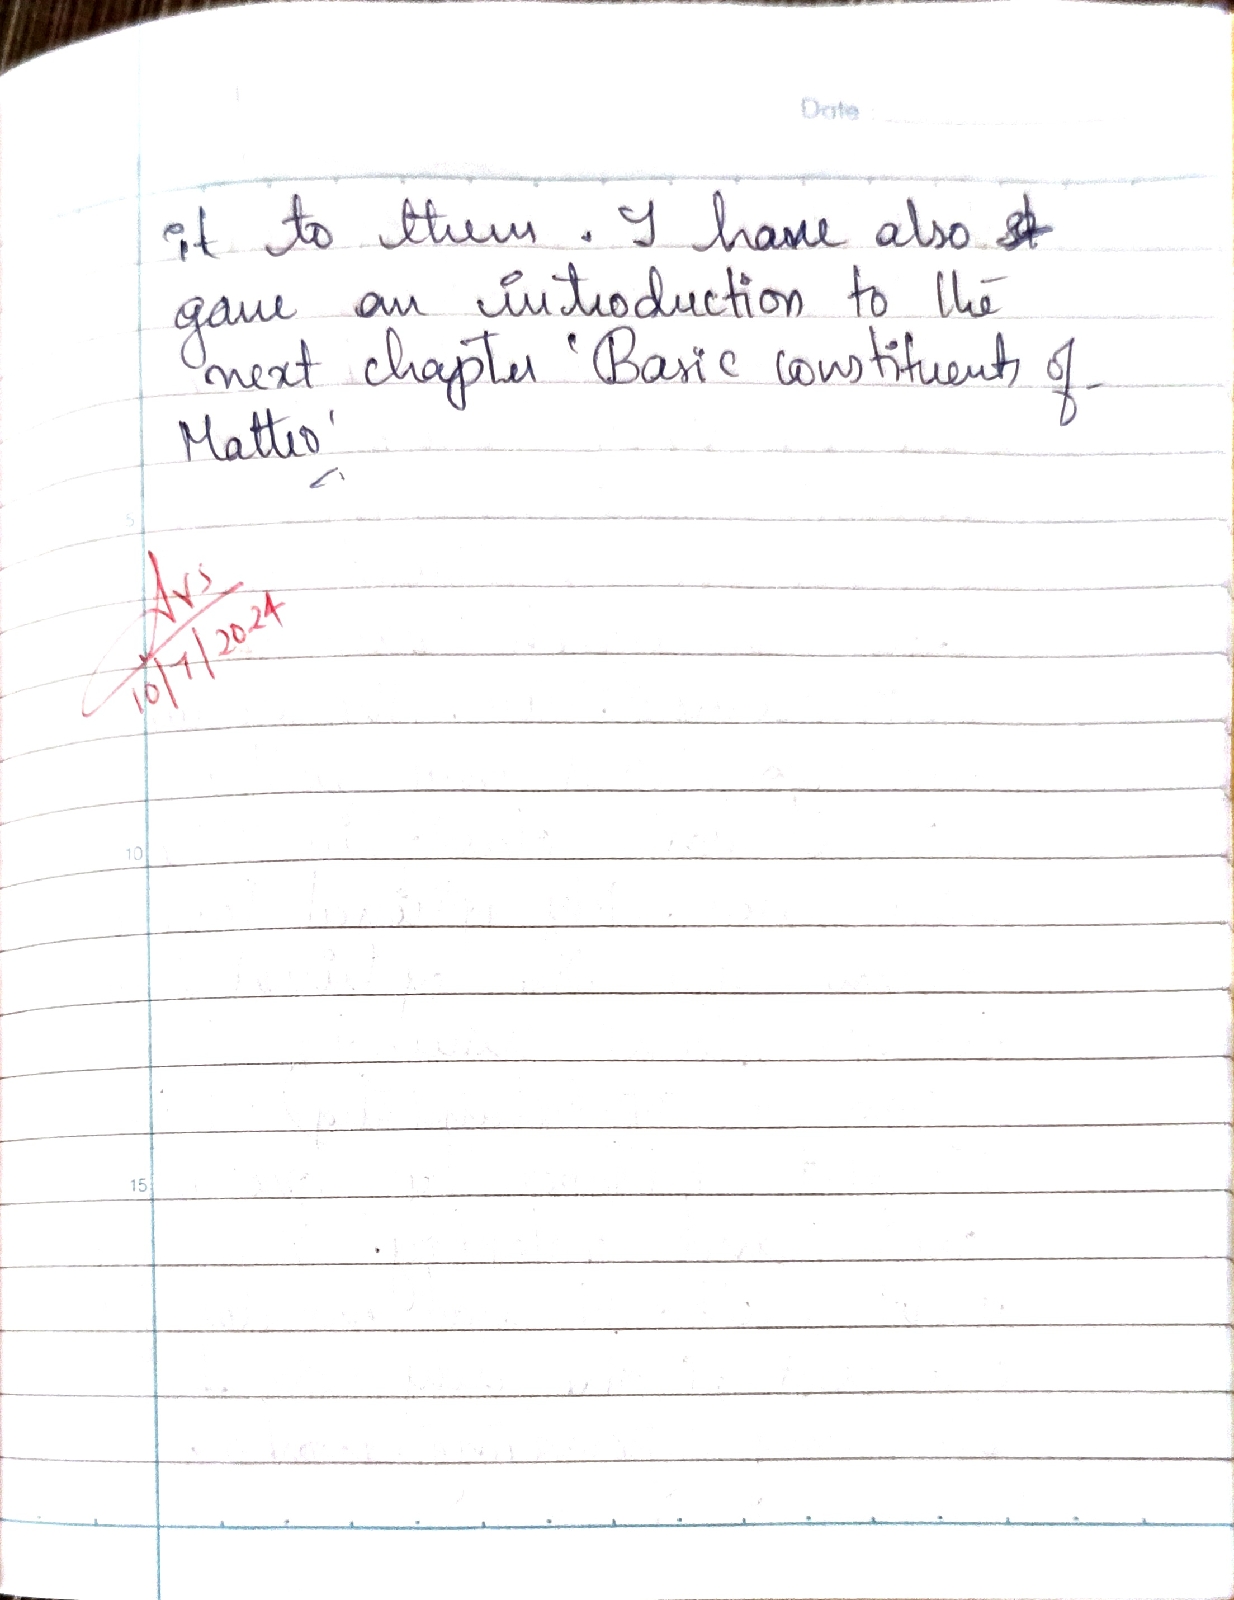 Date
it to them. I have also
gave an introduction to the
next chapter 'Basic constituents of
Matter'
5
10/7/2024
10
15